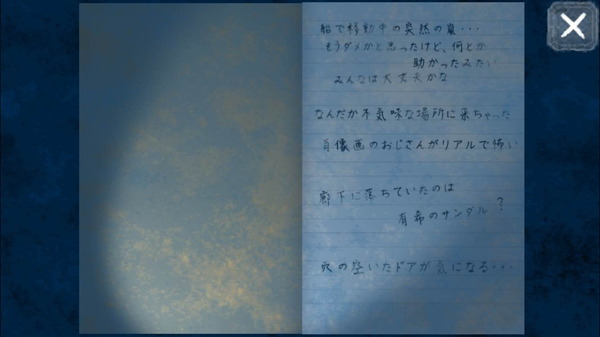 船で移動中の突然の嵐・・・
もうダメかと思ったけど、何とか
助かったみたい
みんなは大丈夫かな
なんだか不気味な場所に来ちゃった
肖像画のおじさんがリアルで怖い
廊下に落ちていたのは
有希のサンダル?
穴の空いたドアが気になる・・・